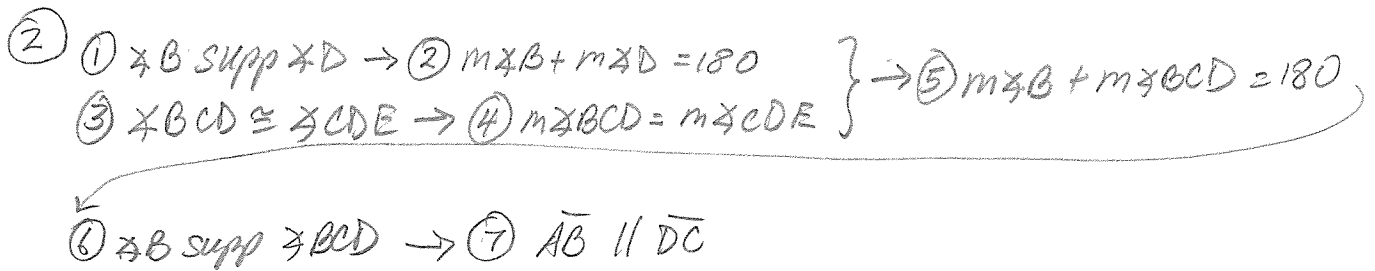 ② ① ∡B supp ∡D → ② m∡B + m∡D = 180
③ ∡BCD ≅ ∡CDE → ④ m∡BCD = m∡CDE } → ⑤ m∡B + m∡BCD = 180
⑥ ∡B supp ∡BCD → ⑦ A̅B̅ // D̅C̅